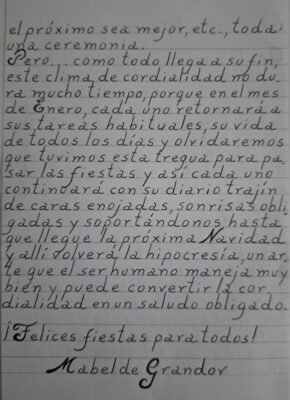 el próximo sea mejor, etc., toda
una ceremonia.
Pero... como todo llega a su fin,
este clima de cordialidad no du-
ra mucho tiempo, porque en el mes
de Enero, cada uno retornará a
sus tareas habituales, su vida
de todos los días y olvidaremos
que tuvimos esta tregua para pa-
sar las fiestas y así cada uno
continuará con su diario trajín
de caras enojadas, sonrisas obli-
gadas y soportándonos, hasta
que llegue la próxima Navidad
y allí volverá la hipocresía, un ar-
te que el ser humano maneja muy
bien y puede convertir la cor-
dialidad en un saludo obligado.
¡Felices fiestas para todos!
Mabel de Grandov